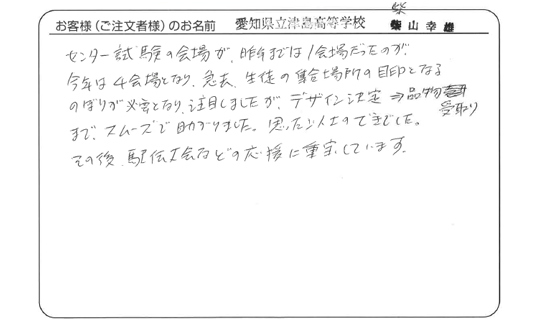 お客様(ご注文者様)のお名前 愛知県立津島高等学校 柴山幸雄
センター試験の会場が、昨年までは1会場だったのが
今年は4会場となり、急きょ、生徒の集合場所の目印となる
のぼりが必要となり、注目しましたが、デザイン決定⇒品物受取り
まで、スムーズで助かりました。思った以上のできでした。
その後、駅伝大会などの応援に重宝しています。